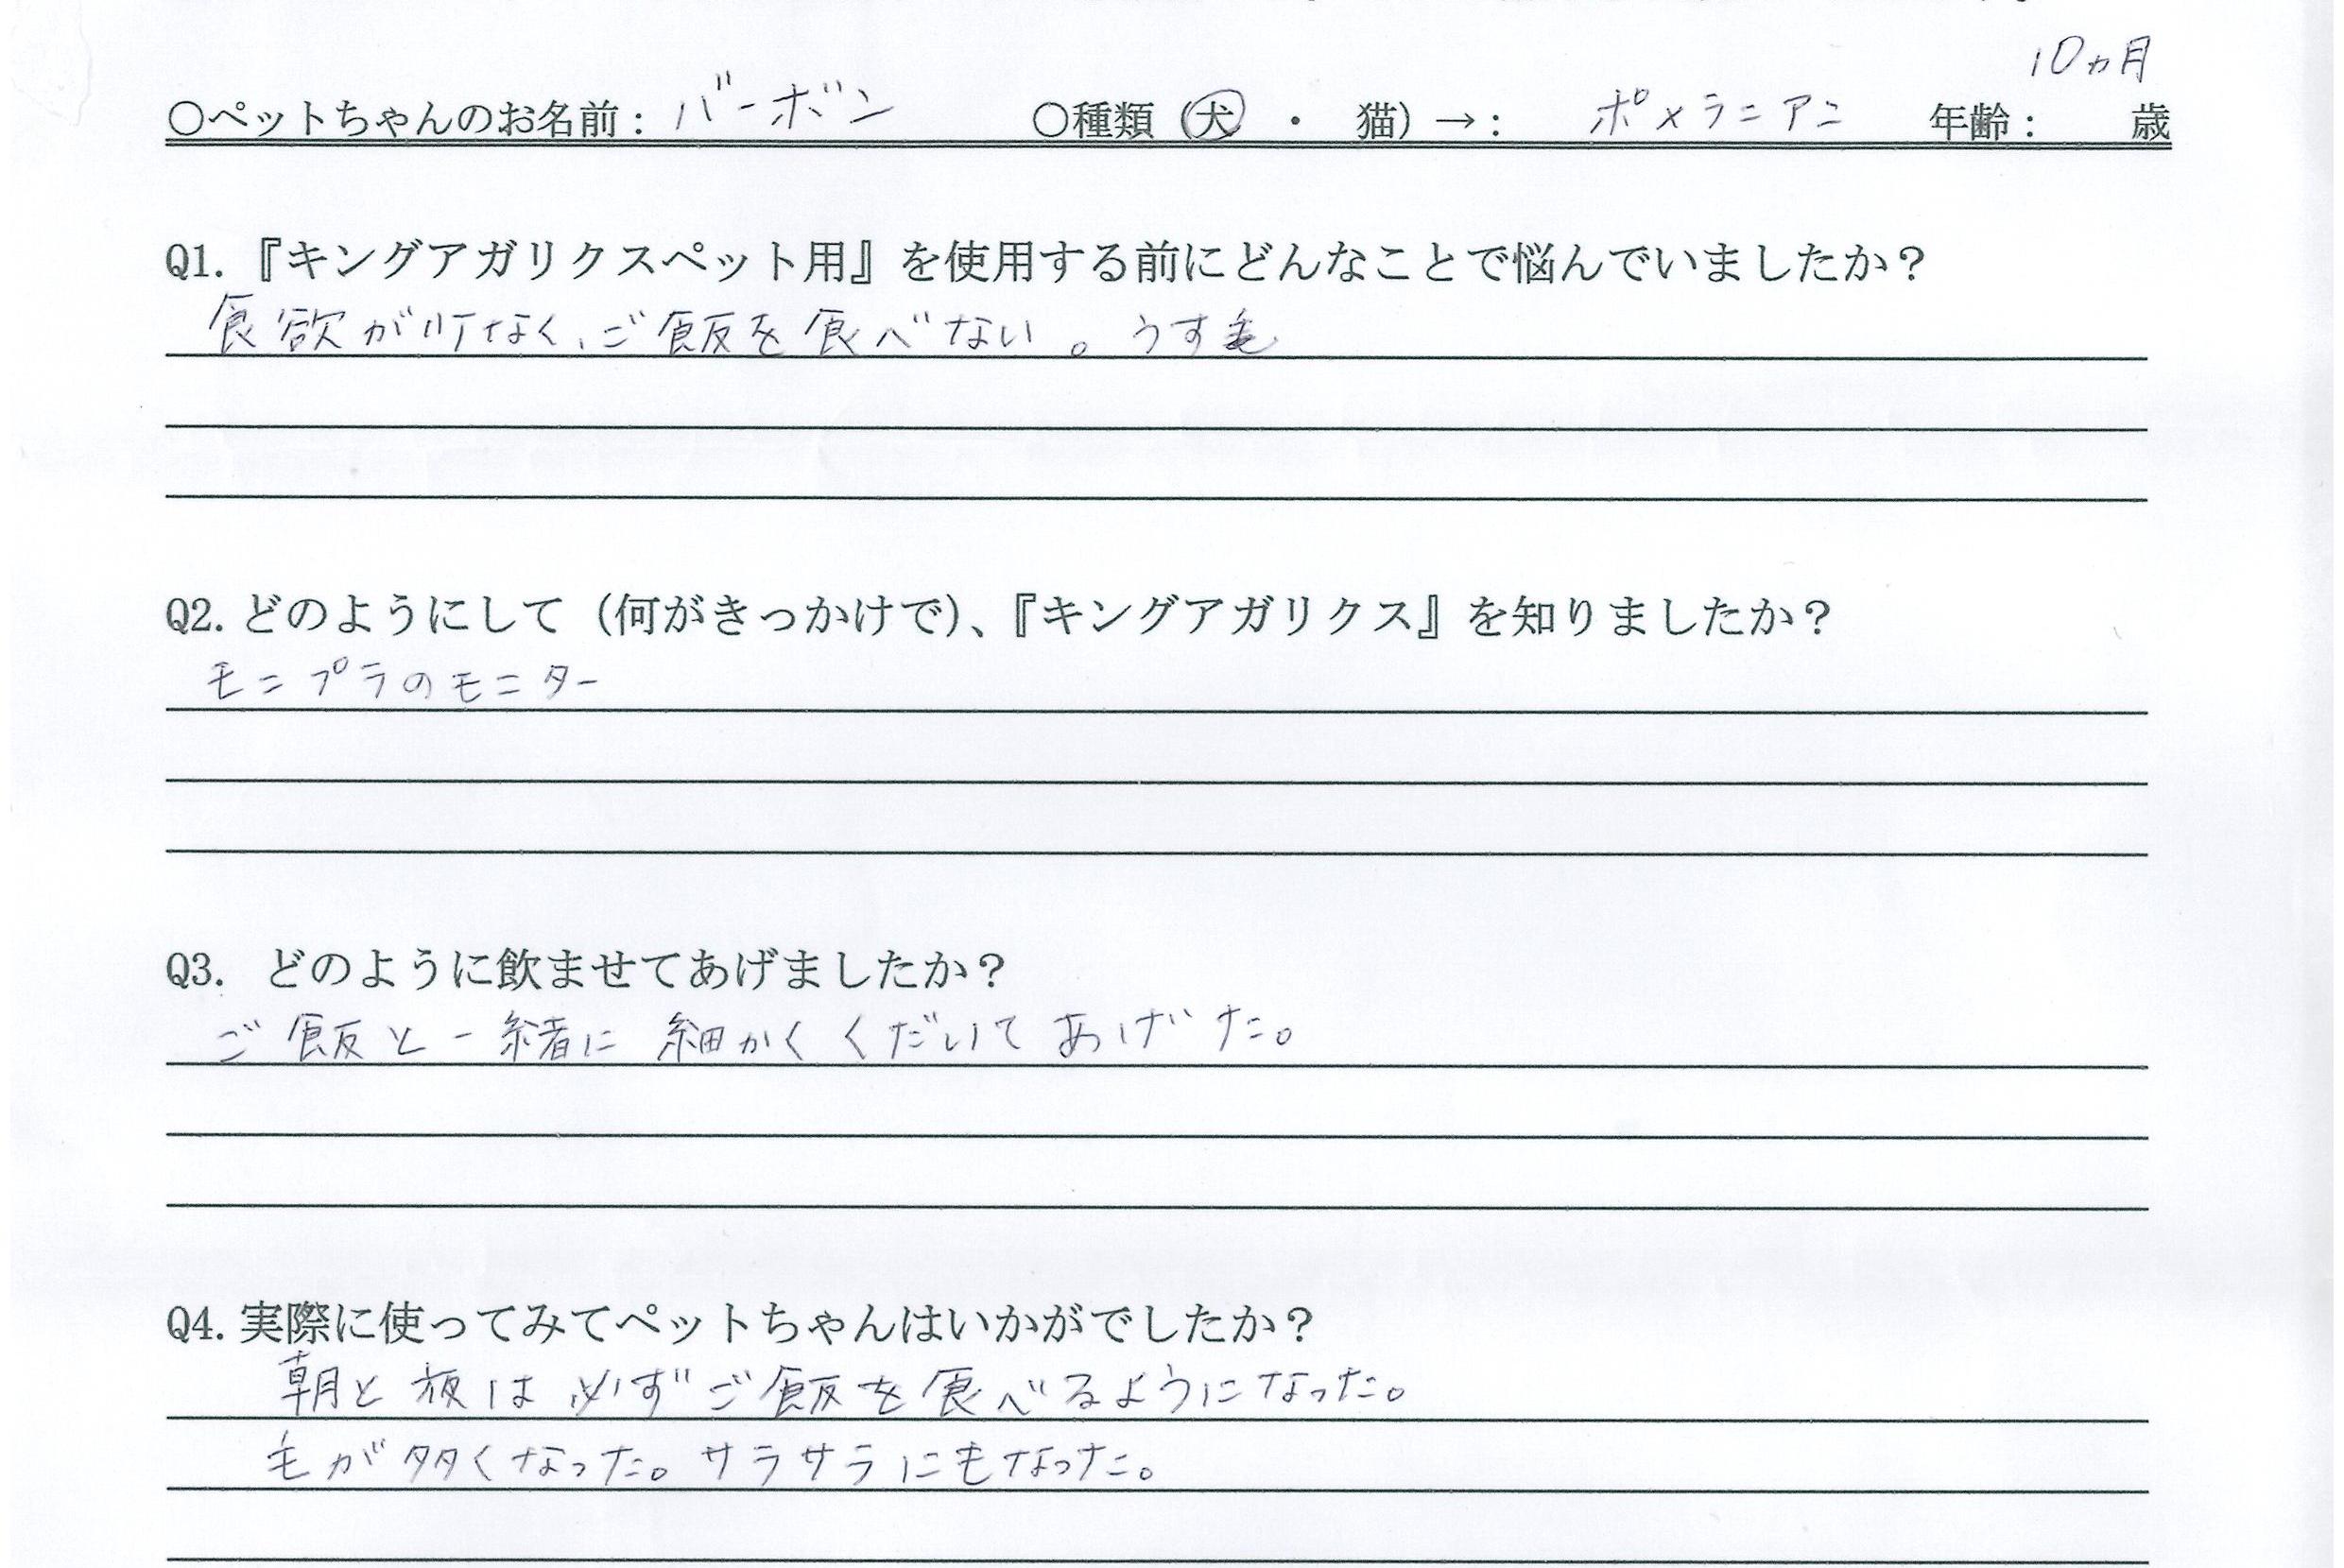 ○ペットちゃんのお名前：バーボン ○種類（犬 ・ 猫）→： ポメラニアン 年齢： 10ヵ月 歳
Q1.『キングアガリクスペット用』を使用する前にどんなことで悩んでいましたか？
食欲が少なく、ご飯を食べない。うす毛
Q2.どのようにして（何がきっかけで）、『キングアガリクス』を知りましたか？
モニプラのモニター
Q3. どのように飲ませてあげましたか？
ご飯と一緒に細かくくだいてあげた。
Q4.実際に使ってみてペットちゃんはいかがでしたか？
朝と夜は必ずご飯を食べるようになった。
毛が多くなった。サラサラにもなった。